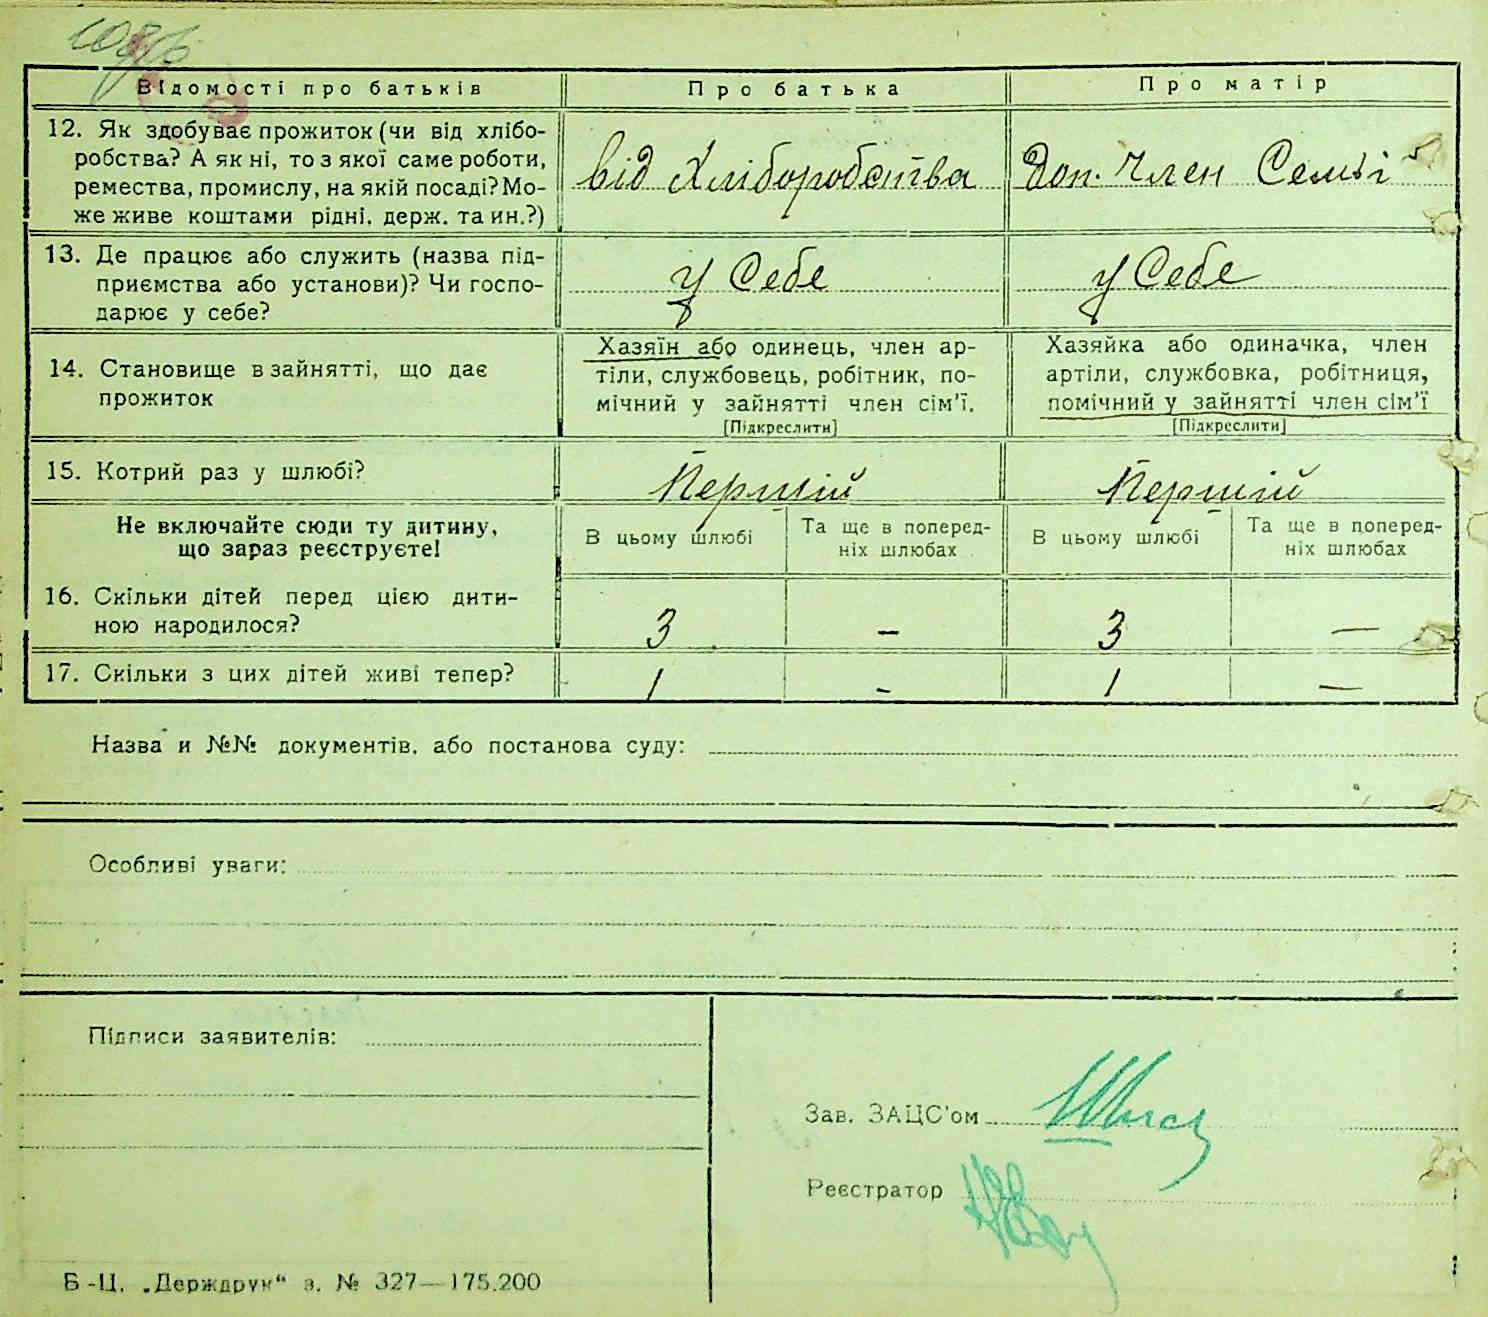 Відомості про батьків
Про батька
Про матір
12. Як здобуває прожиток (чи від хлібо-
робства? А як ні, то з якої саме роботи,
ремества, промислу, на якій посаді? Мо-
же живе коштами рідні, держ. та ин.?)
від Хліборобства
Доп. Член Семьі
13. Де працює або служить (назва під-
приємства або установи)? Чи госпо-
дарює у себе?
у Себе
у Себе
14. Становище в зайнятті, що дає
прожиток
Хазяїн або одинець, член ар-
тіли, службовець, робітник, по-
мічний у зайнятті член сім'ї.
[Підкреслити]
Хазяйка або одиначка, член
артіли, службовка, робітниця,
помічний у зайнятті член сім'ї
[Підкреслити]
15. Котрий раз у шлюбі?
Перший
Перший
Не включайте сюди ту дитину,
що зараз реєструєте!
В цьому шлюбі
Та ще в поперед-
ніх шлюбах
В цьому шлюбі
Та ще в поперед-
ніх шлюбах
16. Скільки дітей перед цією дити-
ною народилося?
3
—
3
—
17. Скільки з цих дітей живі тепер?
1
—
1
—
Назва и №№ документів, або постанова суду:
Особливі уваги:
Підписи заявителів:
Зав. ЗАЦС'ом
Реєстратор
Б-Ц. „Держдрук“ з. № 327—175.200